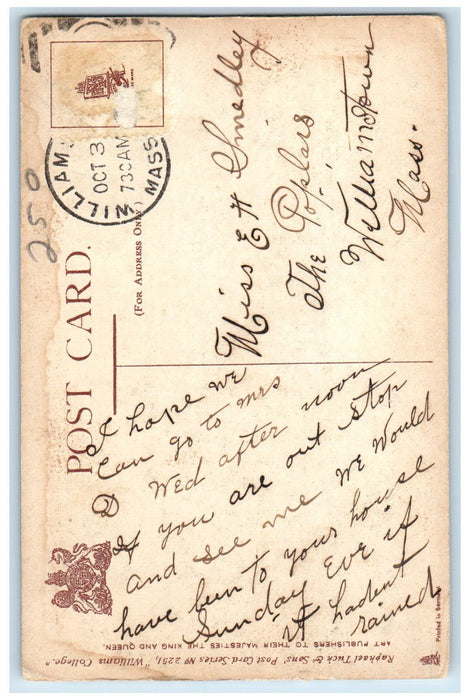 POST CARD.
(FOR ADDRESS ONLY)
WILLIAMS
OCT 3
730AM
MASS.
250
Miss E H Smedley
The Poplars
Williamstown
Mass.
I hope we
can go to Mrs
D Wed after noon
If you are out stop
and see me we would
have been to your house
Sunday Eve if
it hadent
rained
Raphael Tuck & Sons' Post Card Series No 2251, "Williams College."
ART PUBLISHERS TO THEIR MAJESTIES THE KING AND QUEEN.